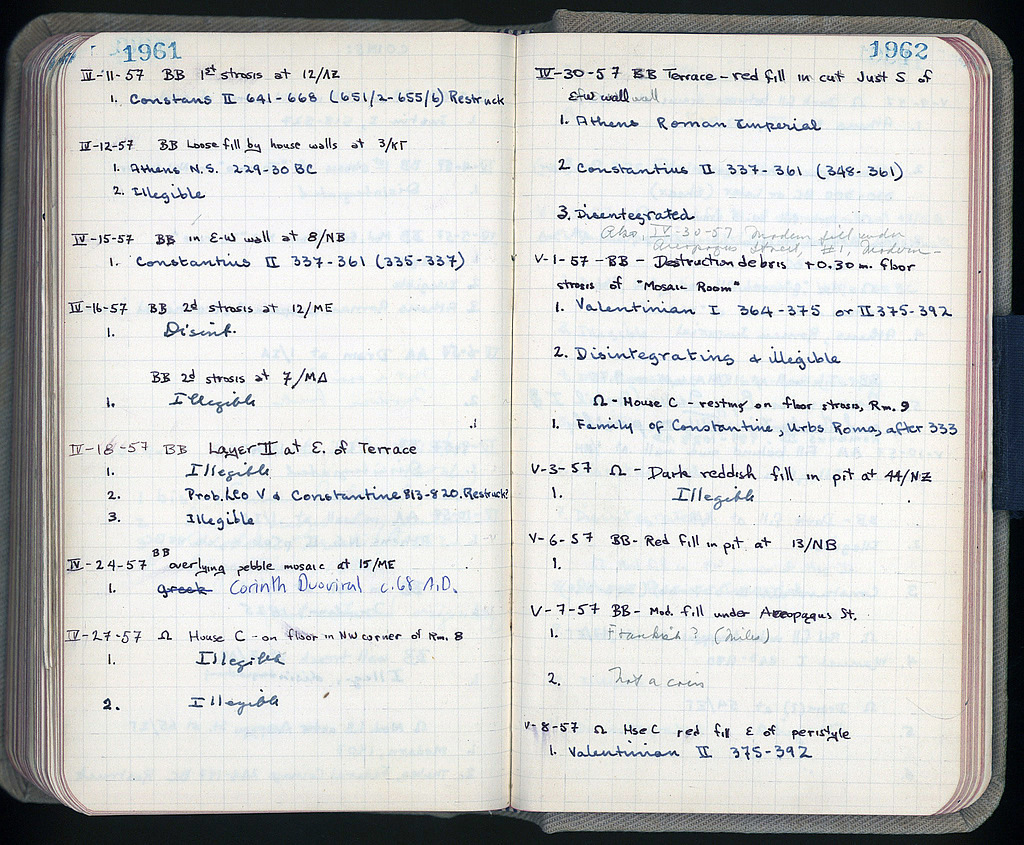 1961
IV-11-57 BB 1st strosis at 12/ΛΖ
1. Constans II 641-668 (651/2-655/6) Restruck
IV-12-57 BB Loose fill by house walls at 3/ΚΓ
1. Athens N.S. 229-30 BC
2. Illegible
IV-15-57 BB in E-W wall at 8/ΝΒ
1. Constantius II 337-361 (335-337)
IV-16-57 BB 2d strosis at 12/ΜΕ
1. Disint.
BB 2d strosis at 7/ΜΔ
1. Illegible
IV-18-57 BB Layer II at E. of Terrace
1. Illegible
2. Prob. Leo V & Constantine 813-820. Restruck?
3. Illegible
BB
IV-24-57 overlying pebble mosaic at 15/ΜΕ
1. greek Corinth Duoviral c.68 A.D.
IV-27-57 Ω House C - on floor in NW corner of Rm. 8
1. Illegible
2. Illegible
1962
IV-30-57 BB Terrace - red fill in cut Just S of
E-W wall wall
1. Athens Roman Imperial
2 Constantius II 337-361 (348-361)
3. Disintegrated
Also, IV-30-57 Modern fill under
Areopagus Street, #1, Modern-
V-1-57 - BB - Destruction debris +0.30 m. floor
strosis of "Mosaic Room"
1. Valentinian I 364-375 or II 375-392
2. Disintegrating & illegible
Ω - House C - resting on floor strosis, Rm. 9
1. Family of Constantine, Urbs Roma, after 333
V-3-57 Ω - Dark reddish fill in pit at 44/ΝΖ
1. Illegible
V-6-57 BB- Red fill in pit at 13/ΝΒ
1.
V-7-57 BB- Mod. fill under Areopagus St.
1. Frankish? (Miles)
2. Not a coin
V-8-57 Ω Hse C red fill E of peristyle
1. Valentinian II 375-392